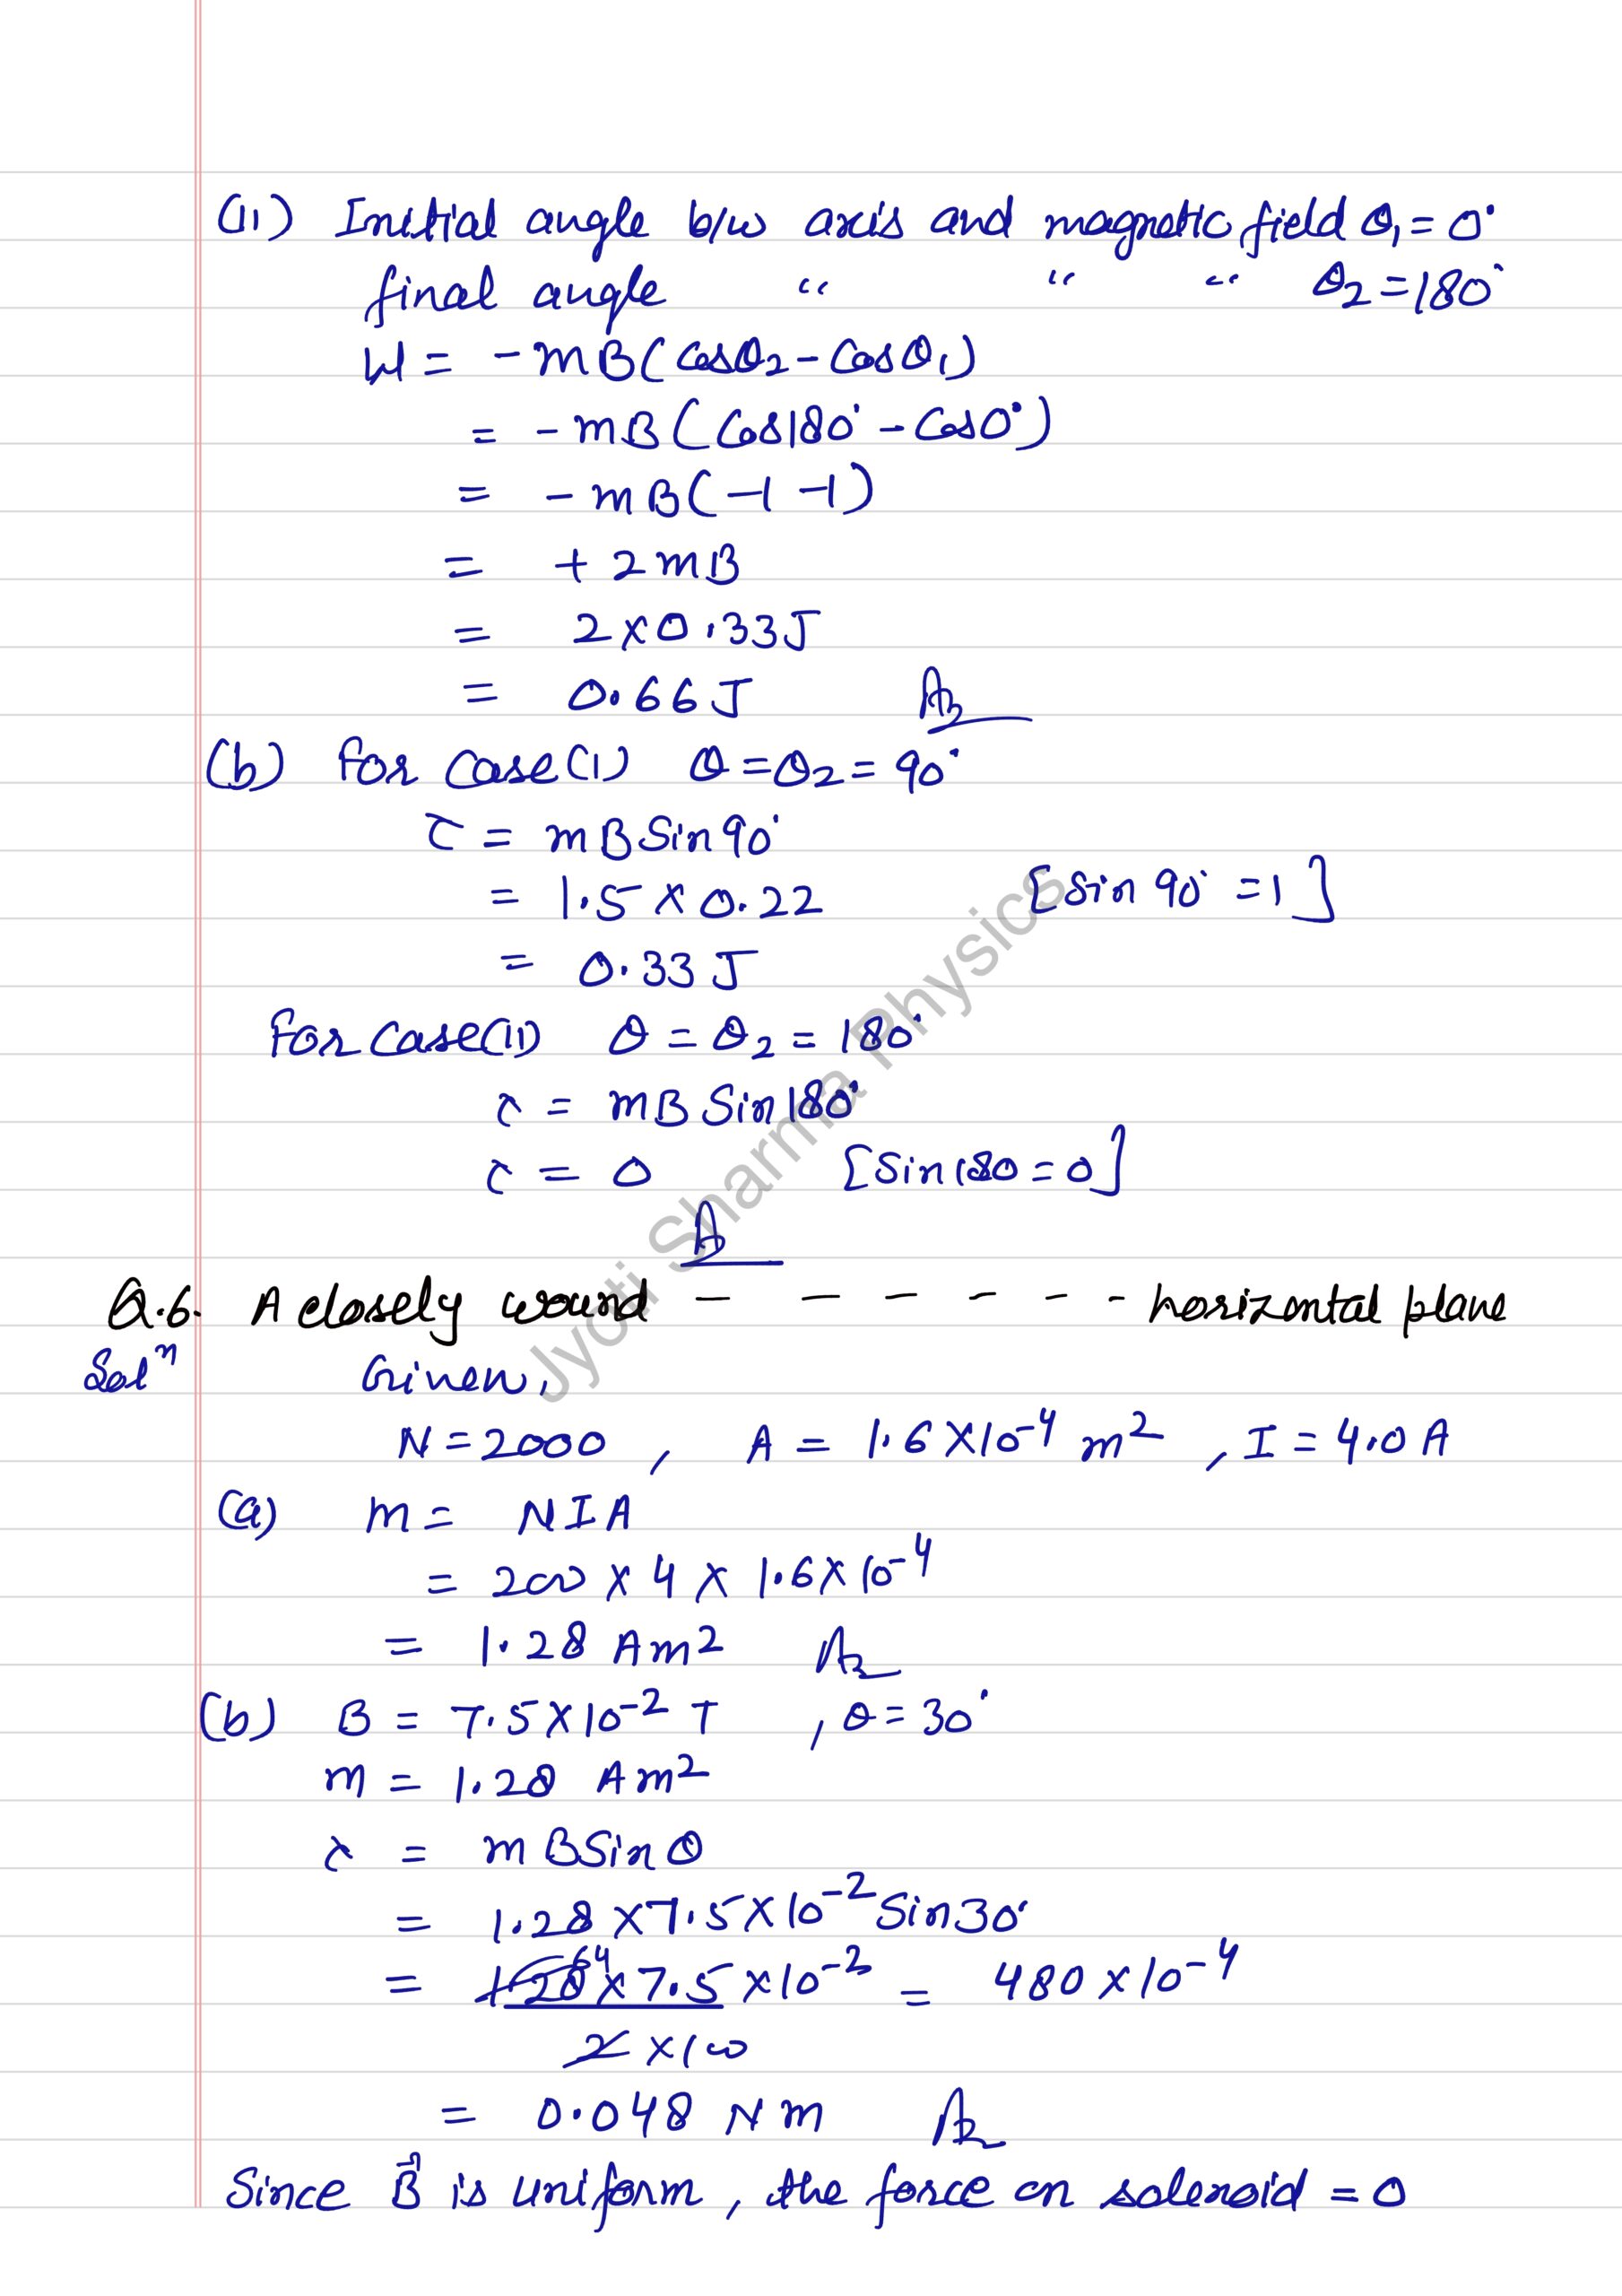 (ii) Initial angle b/w axis and magnetic field θ₁ = 0°
final angle " " " θ₂ = 180°
W = -mB(Cosθ₂ - Cosθ₁)
= -mB(Cos180° - Cos0°)
= -mB(-1 -1)
= +2mB
= 2×0.33J
= 0.66J Ans
(b) for Case(i) θ = θ₂ = 90°
τ = mBSin90°
= 1.5 × 0.22 [Sin 90° = 1]
= 0.33 J
for Case(ii) θ = θ₂ = 180°
τ = mB Sin180°
τ = 0 [Sin180 = 0]
Ans
Q.6. A closely wound - - - - - - horizontal plane
Solⁿ Given,
N = 2000 , A = 1.6×10⁻⁴ m² , I = 4.0 A
(a) m = NIA
= 200 × 4 × 1.6×10⁻⁴
= 1.28 Am² Ans
(b) B = 7.5×10⁻² T , θ = 30°
m = 1.28 Am²
τ = mBSinθ
= 1.28 ×7.5×10⁻² Sin30°
64
= 128×7.5 ×10⁻² = 480×10⁻⁴
2 ×100
= 0.048 Nm Ans
Since B⃗ is uniform, the force on solenoid = 0
Jyoti Sharma Physics